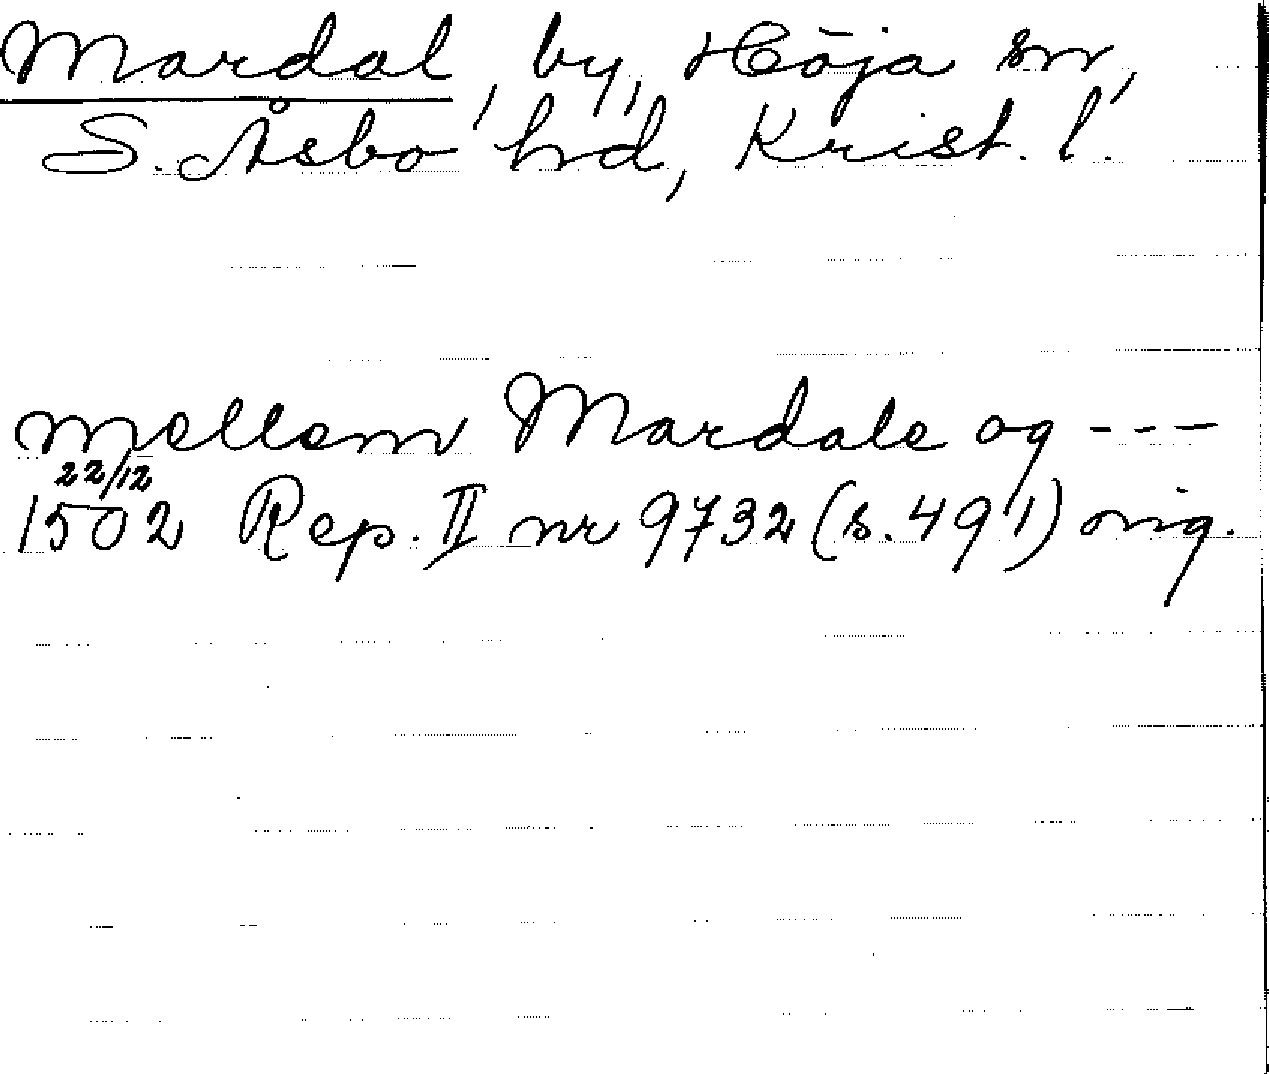 Mardal, by, Höja sn,
S. Åsbo hd, Krist. l.
mellem Mardale og ---
22/12
1502 Rep. II nr 9732 (s. 491) orig.